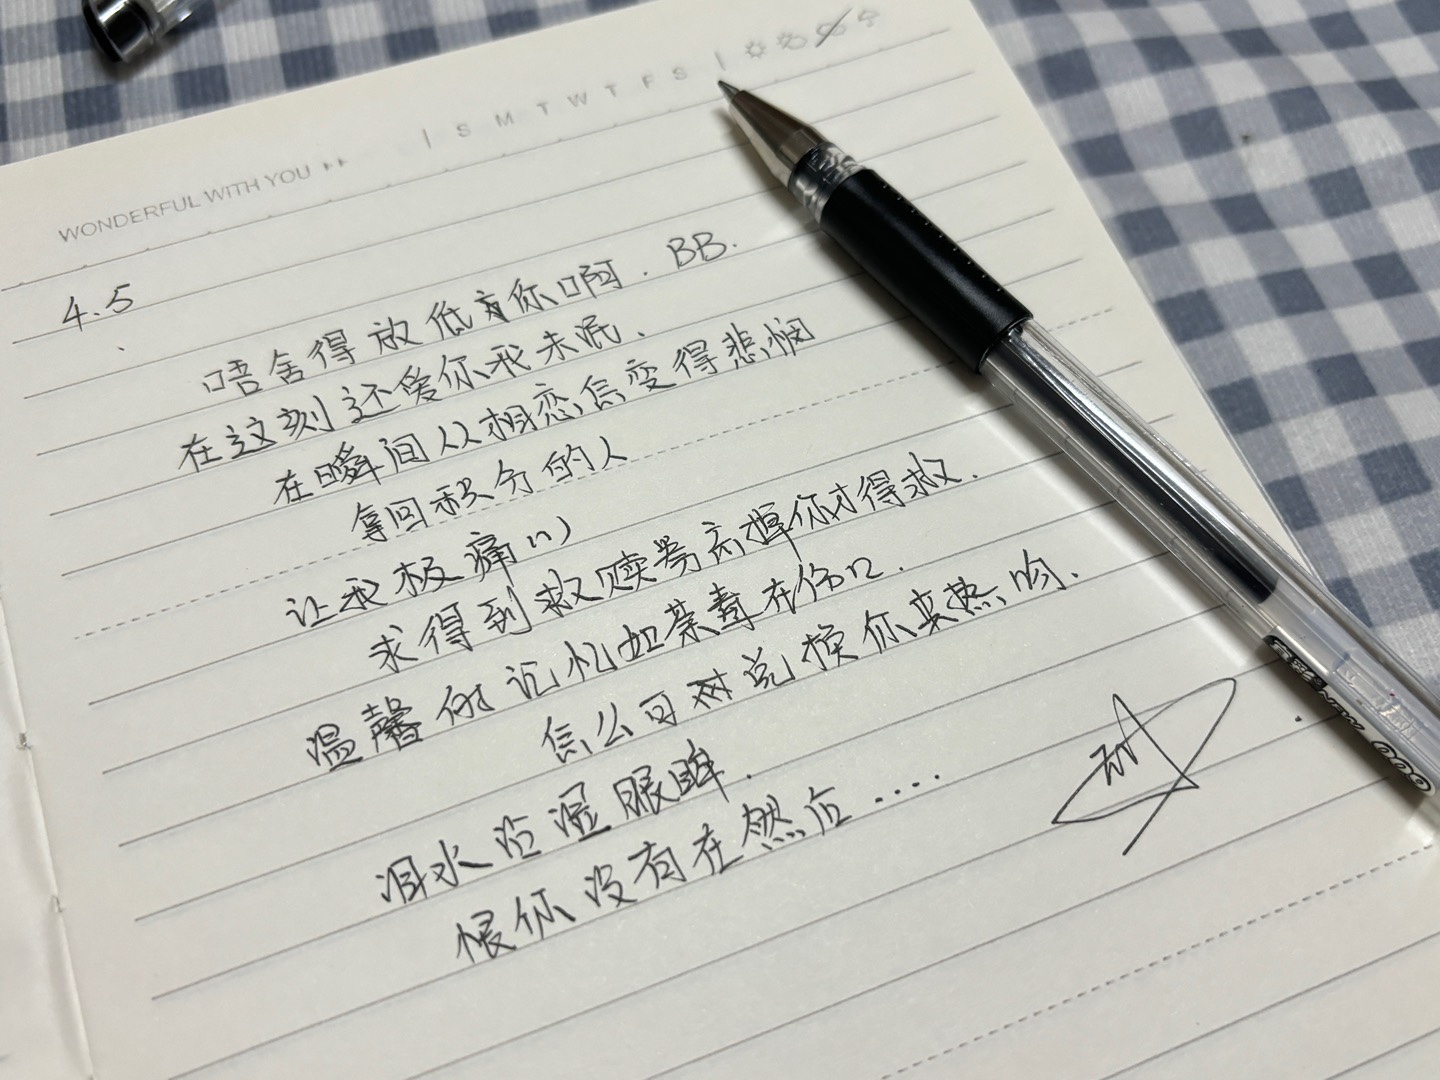 WONDERFUL WITH YOU
S M T W T F S
4.5
唔舍得放低你啊. BB.
在这刻还爱你我未泯.
在瞬间从相恋怎变得悲悯
拿回积分的人
让我极痛心
求得到救赎等亦掉你才得救.
温馨的记忆如荼毒在伤口.
怎么可对兑换你卖热吻.
泪水沿湿眼眸.
恨你没有在然后....